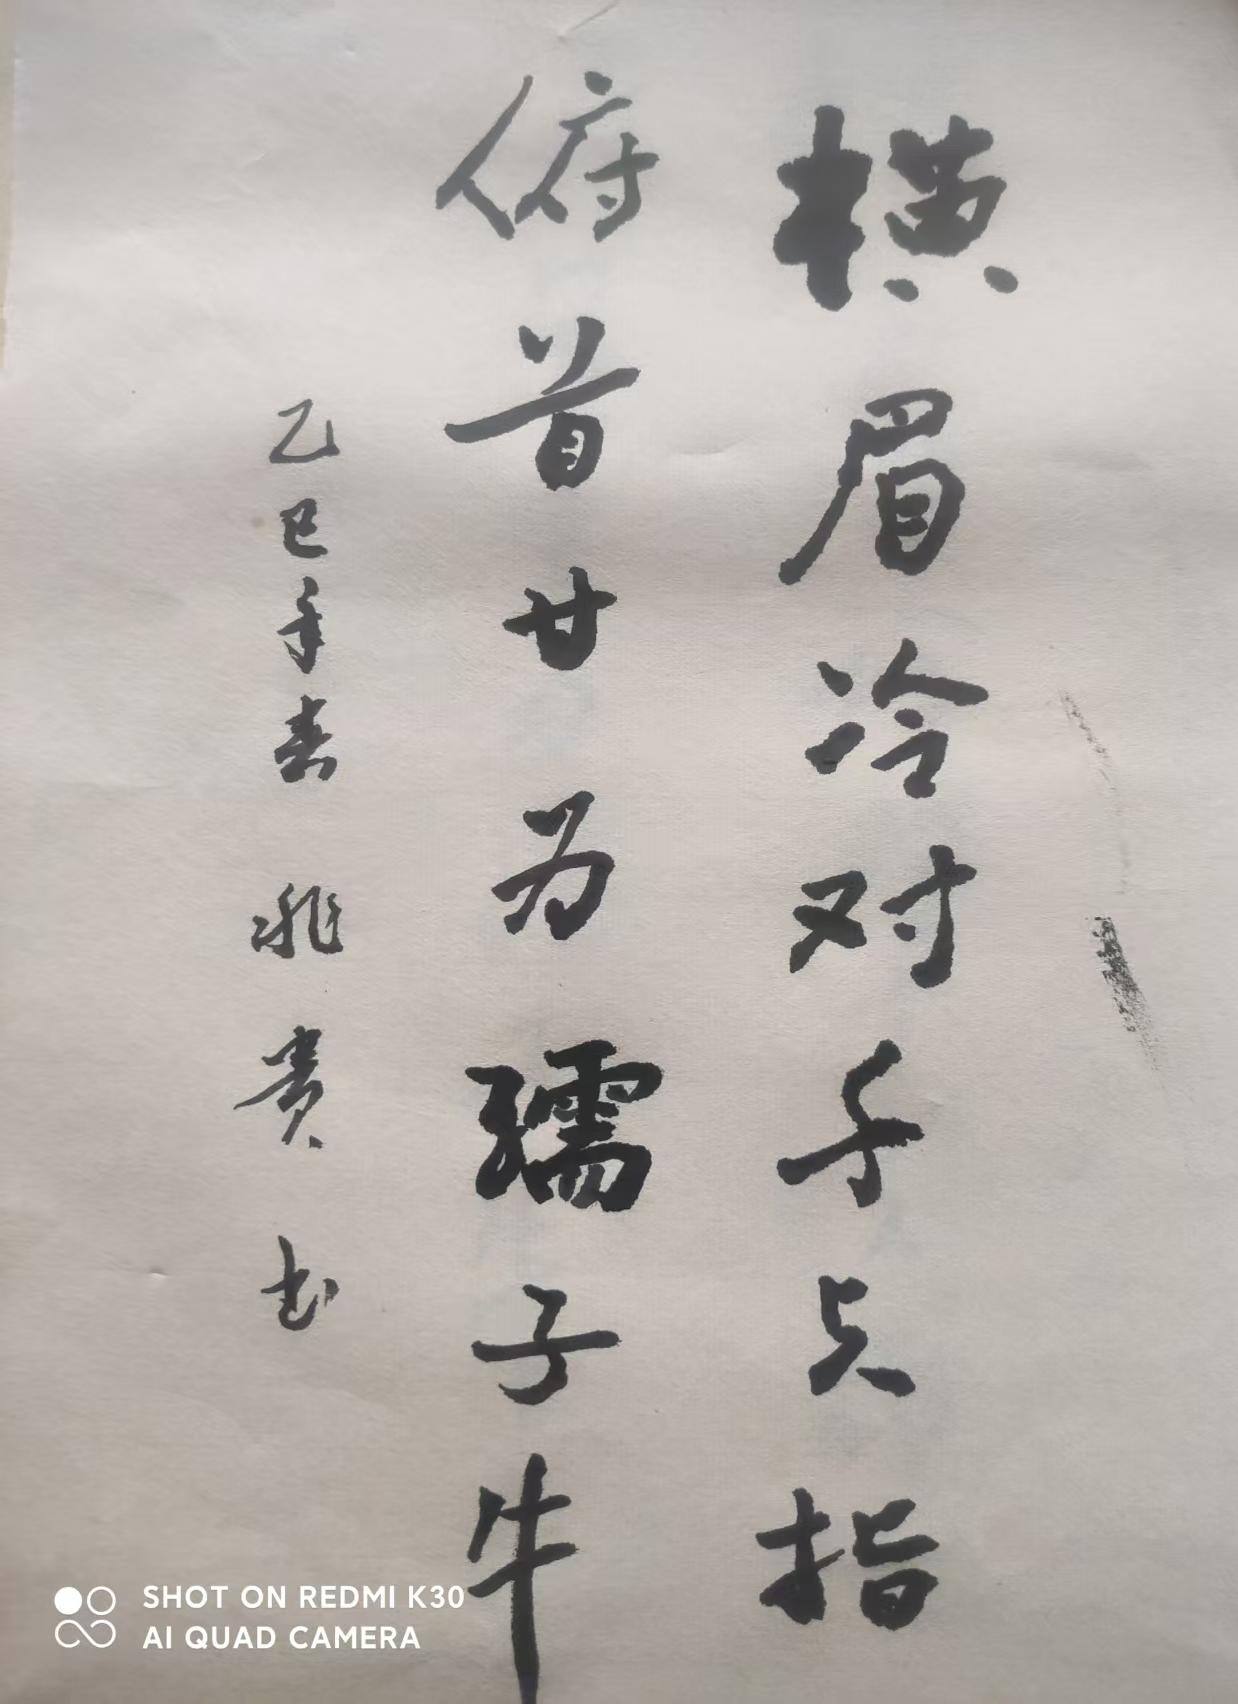 横眉冷对千夫指
俯首甘为孺子牛
乙巳年春 贵书
SHOT ON REDMI K30
AI QUAD CAMERA